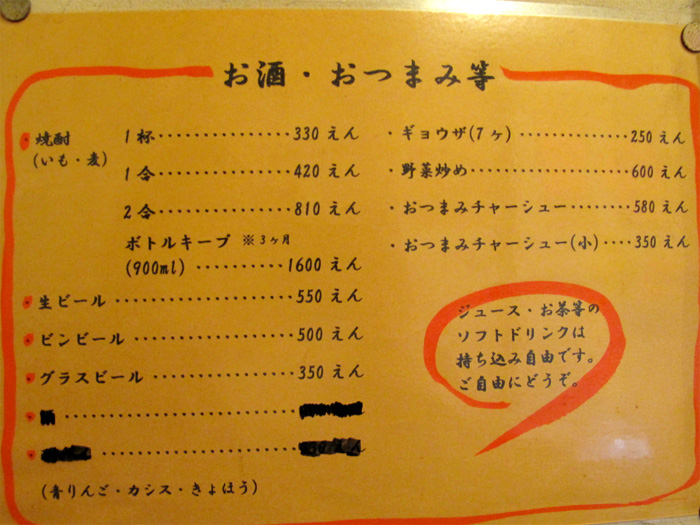 お酒・おつまみ等
焼酎 1杯 330 えん
(いも・麦)
1合 420 えん
2合 810 えん
ボトルキープ ※3ヶ月
(900ml) 1600 えん
生ビール 550 えん
ビンビール 500 えん
グラスビール 350 えん
(青りんご・カシス・きょほう)
・ギョウザ(7ヶ) 250 えん
・野菜炒め 600 えん
・おつまみチャーシュー 580 えん
・おつまみチャーシュー(小) 350 えん
ジュース・お茶等の
ソフトドリンクは
持ち込み自由です。
ご自由にどうぞ。